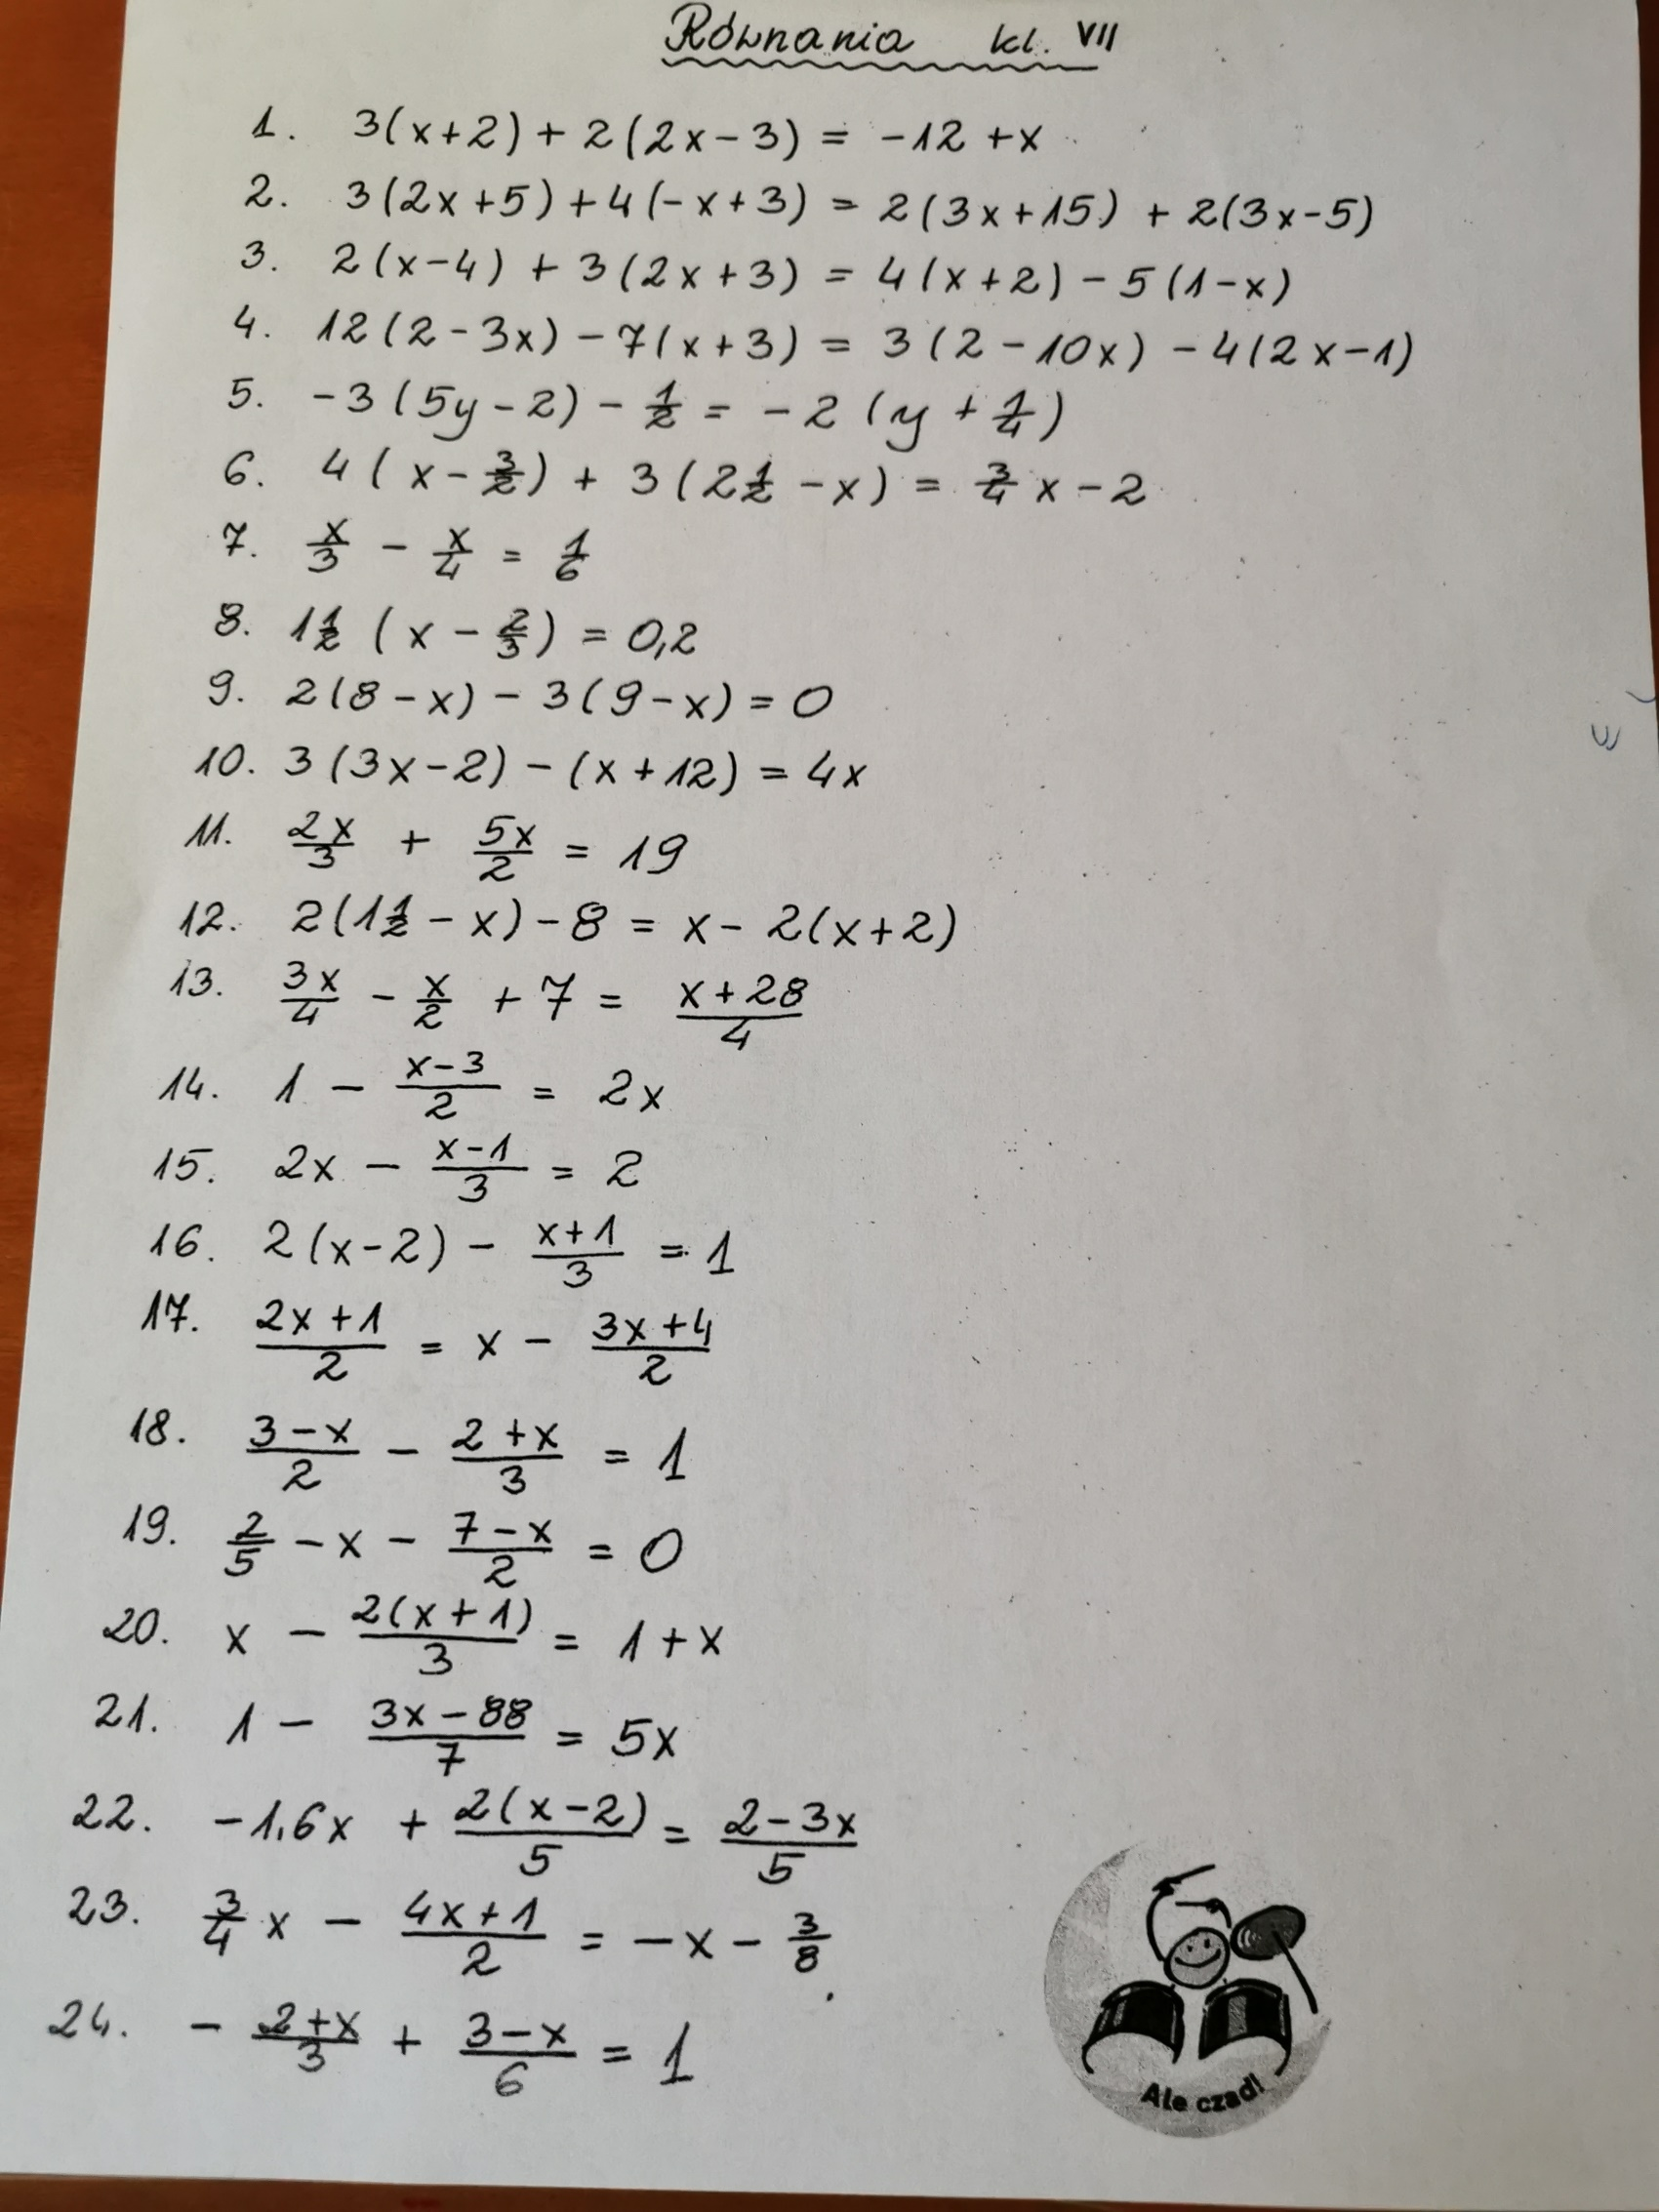 Równania kl. VII
1. 3(x+2) + 2(2x-3) = -12 +x
2. 3(2x+5)+4(-x+3) = 2(3x+15) + 2(3x-5)
3. 2(x-4) + 3(2x+3) = 4(x+2) - 5(1-x)
4. 12(2-3x) - 7(x+3) = 3(2-10x) - 4(2x-1)
5. -3(5y-2) - 1/2 = -2(y + 1/4)
6. 4(x - 3/2) + 3(2 1/2 - x) = 3/4 x - 2
7. x/3 - x/4 = 1/6
8. 1 1/2 (x - 2/3) = 0,2
9. 2(8-x) - 3(9-x) = 0
10. 3(3x-2) - (x+12) = 4x
11. 2x/3 + 5x/2 = 19
12. 2(1 1/2 - x) - 8 = x - 2(x+2)
13. 3x/4 - x/2 + 7 = (x+28)/4
14. 1 - (x-3)/2 = 2x
15. 2x - (x-1)/3 = 2
16. 2(x-2) - (x+1)/3 = 1
17. (2x+1)/2 = x - (3x+4)/2
18. (3-x)/2 - (2+x)/3 = 1
19. 2/5 - x - (7-x)/2 = 0
20. x - 2(x+1)/3 = 1+x
21. 1 - (3x-88)/7 = 5x
22. -1,6x + 2(x-2)/5 = (2-3x)/5
23. 3/4 x - (4x+1)/2 = -x - 3/8
24. - (2+x)/3 + (3-x)/6 = 1
Ale czad!